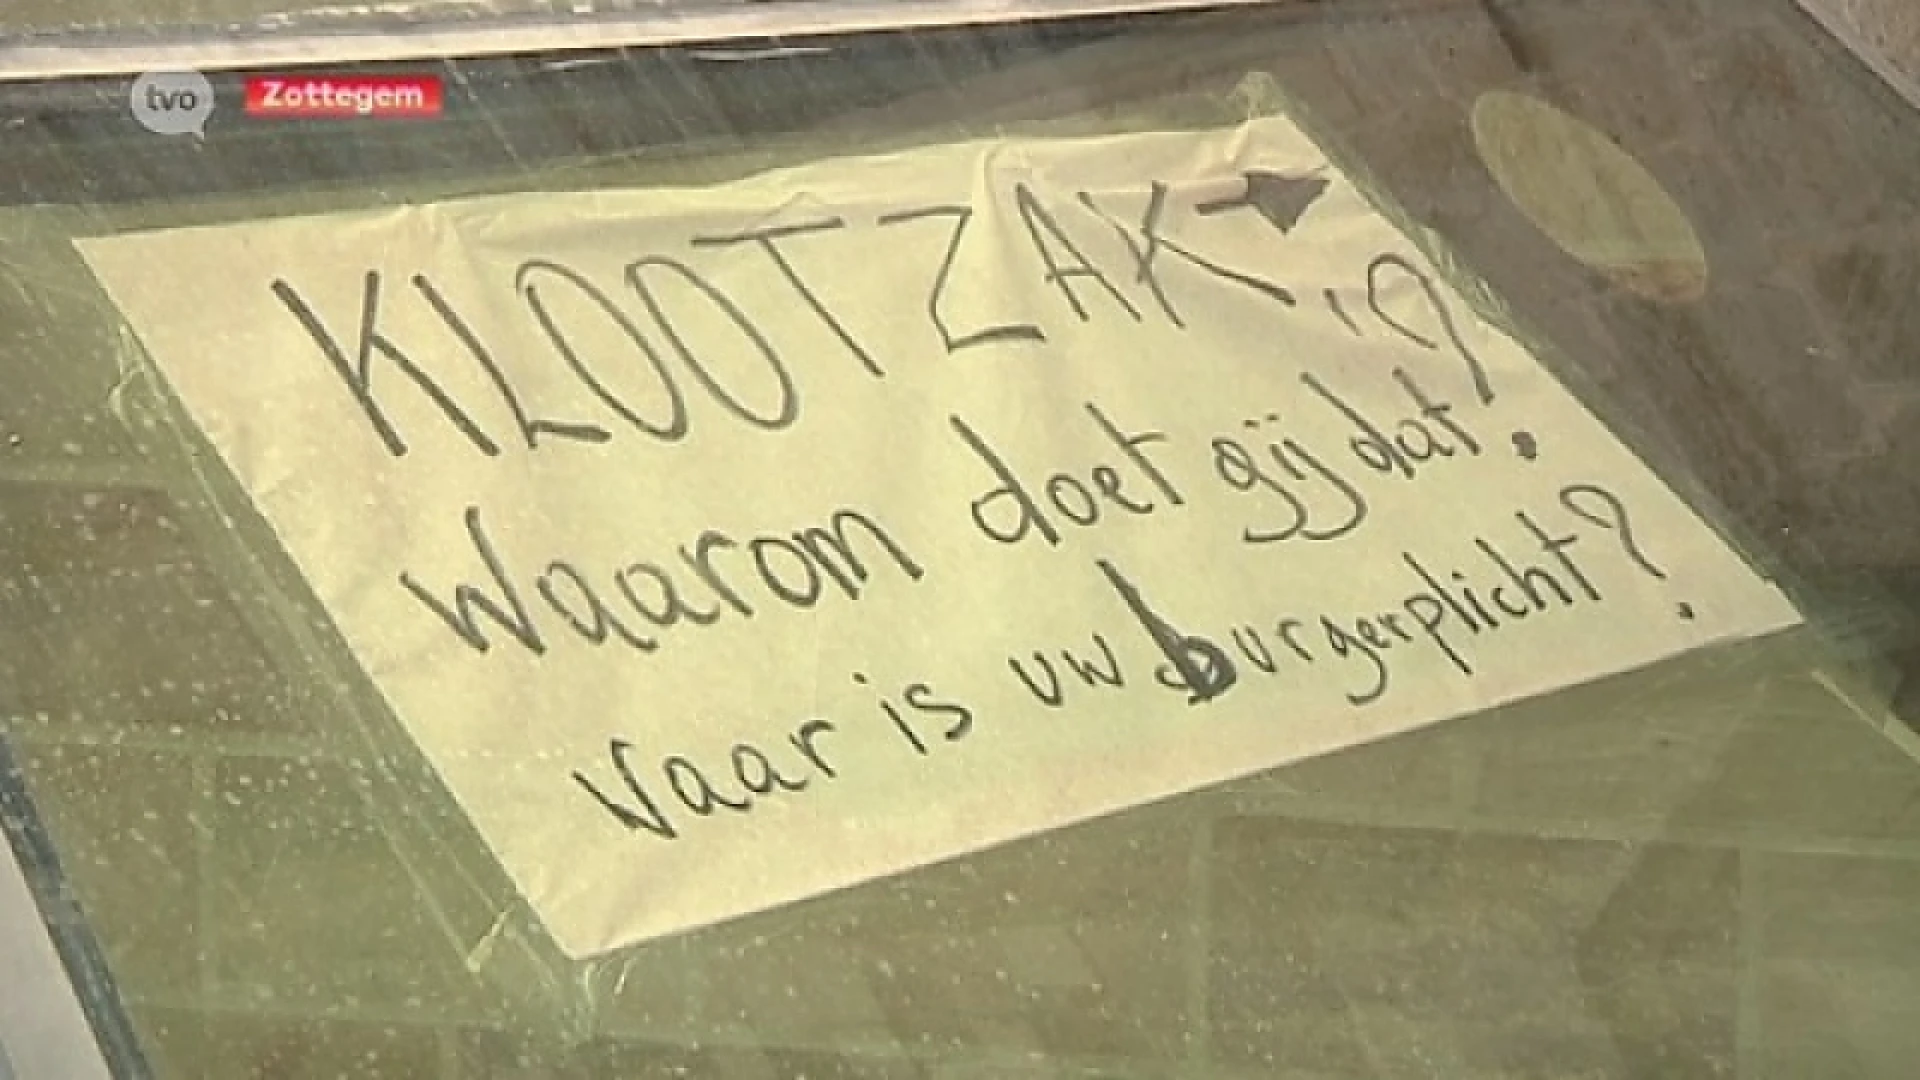 tvo
Zottegem
KLOOTZAK →
Waarom doet gij dat?
Waar is uw burgerplicht?